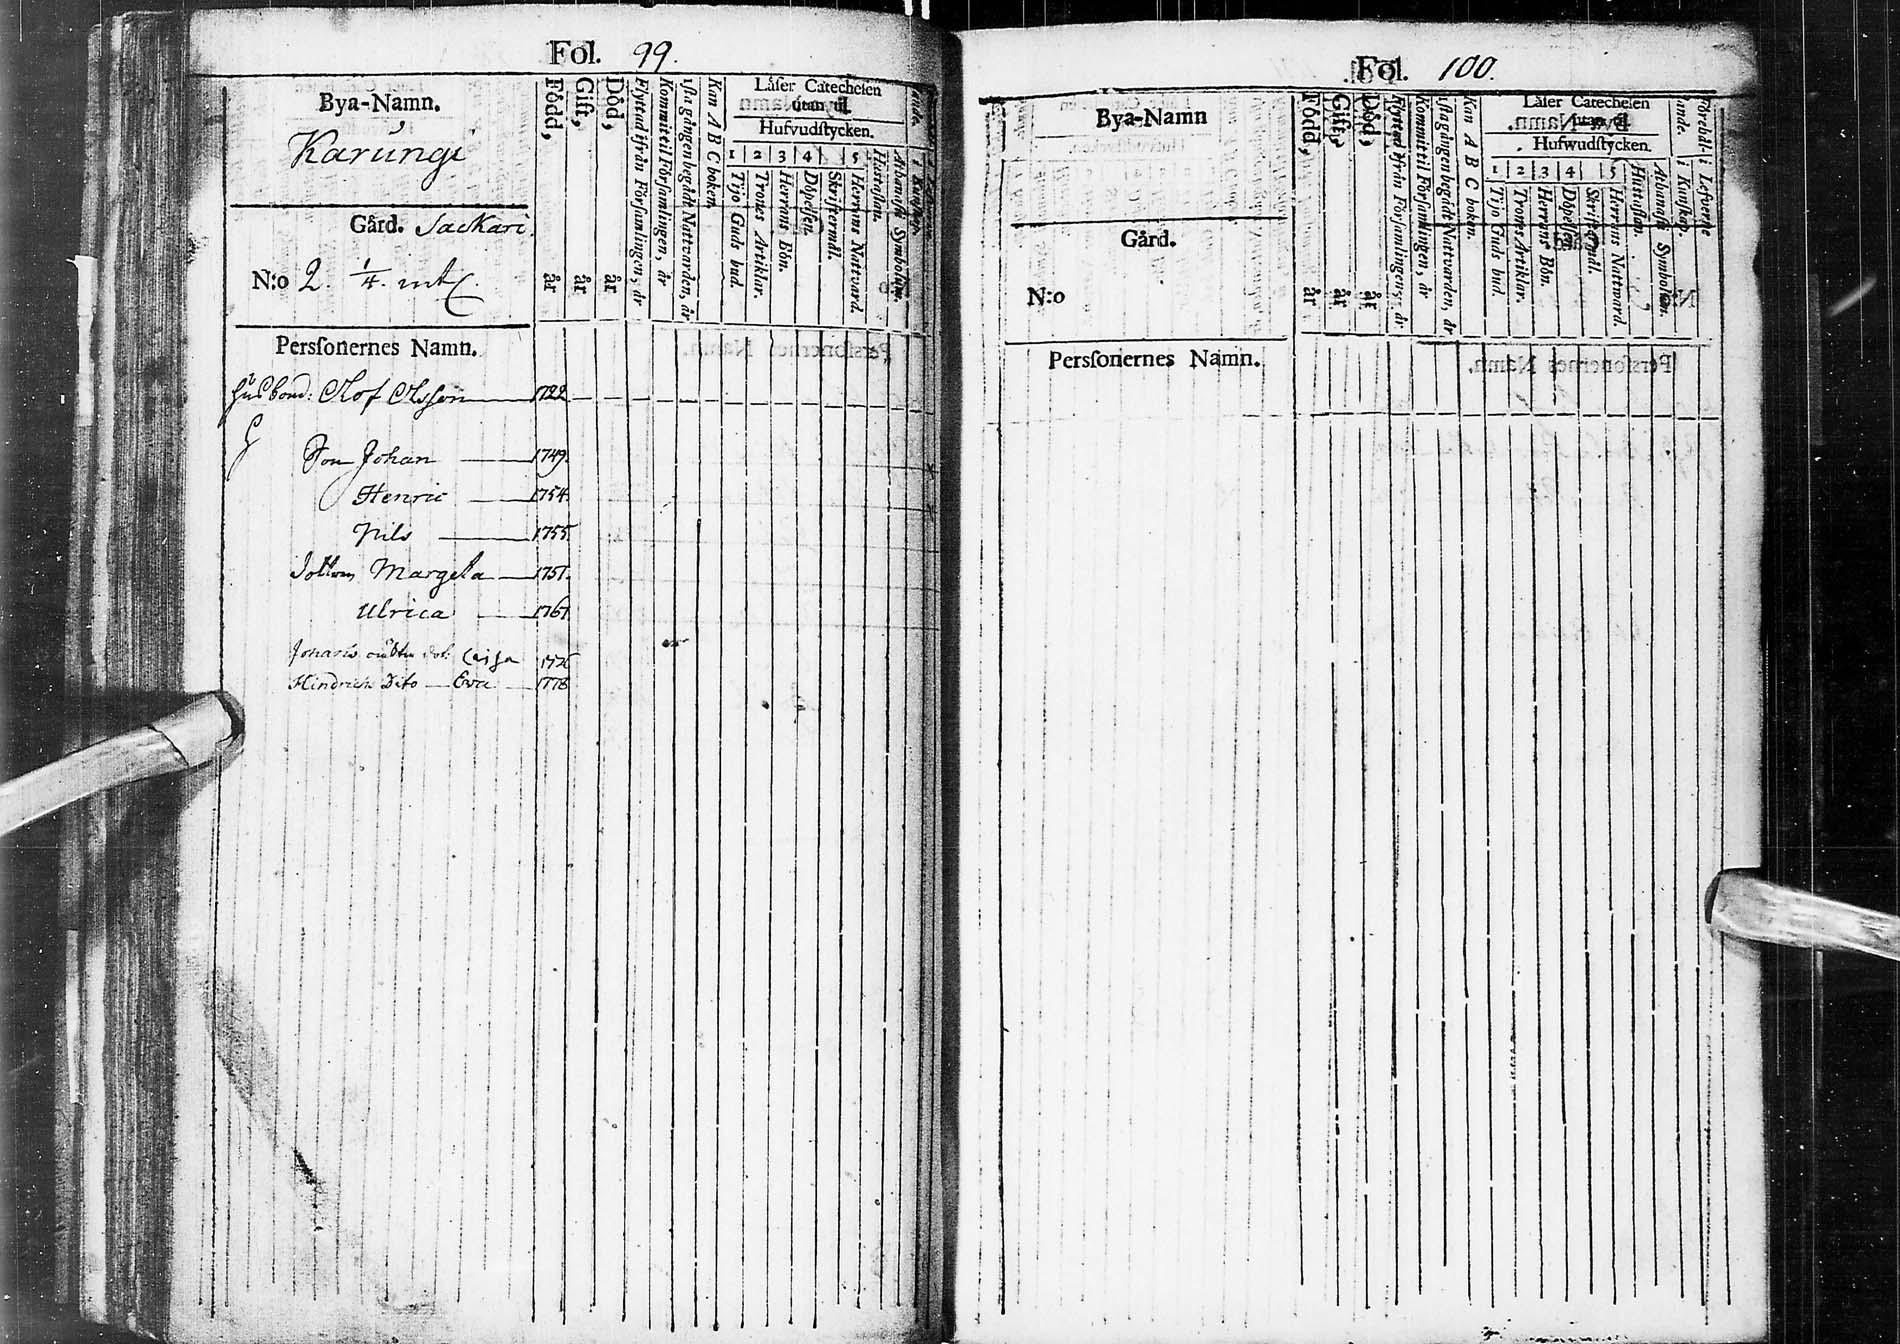 Fol. 99.
Bya-Namn.
Karungi
Gård. Sackari.
N:o 2. 1/4. mtl.
Född, år
Gift, år
Död, år
Flyttad ifrån Församlingen, år
Kommit til Församlingen, år
1sta gången begådt Nattvarden, år
Kan A B C boken.
Låser Catechesen
utan til.
Hufvudstycken.
1 2 3 4 5
Tijo Guds bud.
Trones Artiklar.
Herrans Bön.
Döpelsen.
Skriftermål.
Herrans Nattvard.
Hustaflan.
Athanasii Symbolum.
Personernes Namn.
Husbond: Olof Olsson 1722
Son Johan 1749.
Henric 1754.
Nils 1755.
Margeta 1751.
Ulrica 1761
Johans Caisa
Hindrich Dito Eva 1778
Fol. 100.
Bya-Namn
Gård.
N:o
Född, år
Gift, år
Död, år
Flyttad ifrån Församlingen, år
Kommit til Församlingen, år
1sta gången begådt Nattvarden, år
Kan A B C boken.
Låser Catechesen
utan til.
Hufwudstycken.
1 2 3 4 5
Tijo Guds bud.
Trones Artiklar.
Herrans Bön.
Döpelsen.
Skriftermål.
Herrans Nattvard.
Hustaflan.
Athanasii Symbolum.
i Kunskap.
i Lefverne
Personernes Namn.